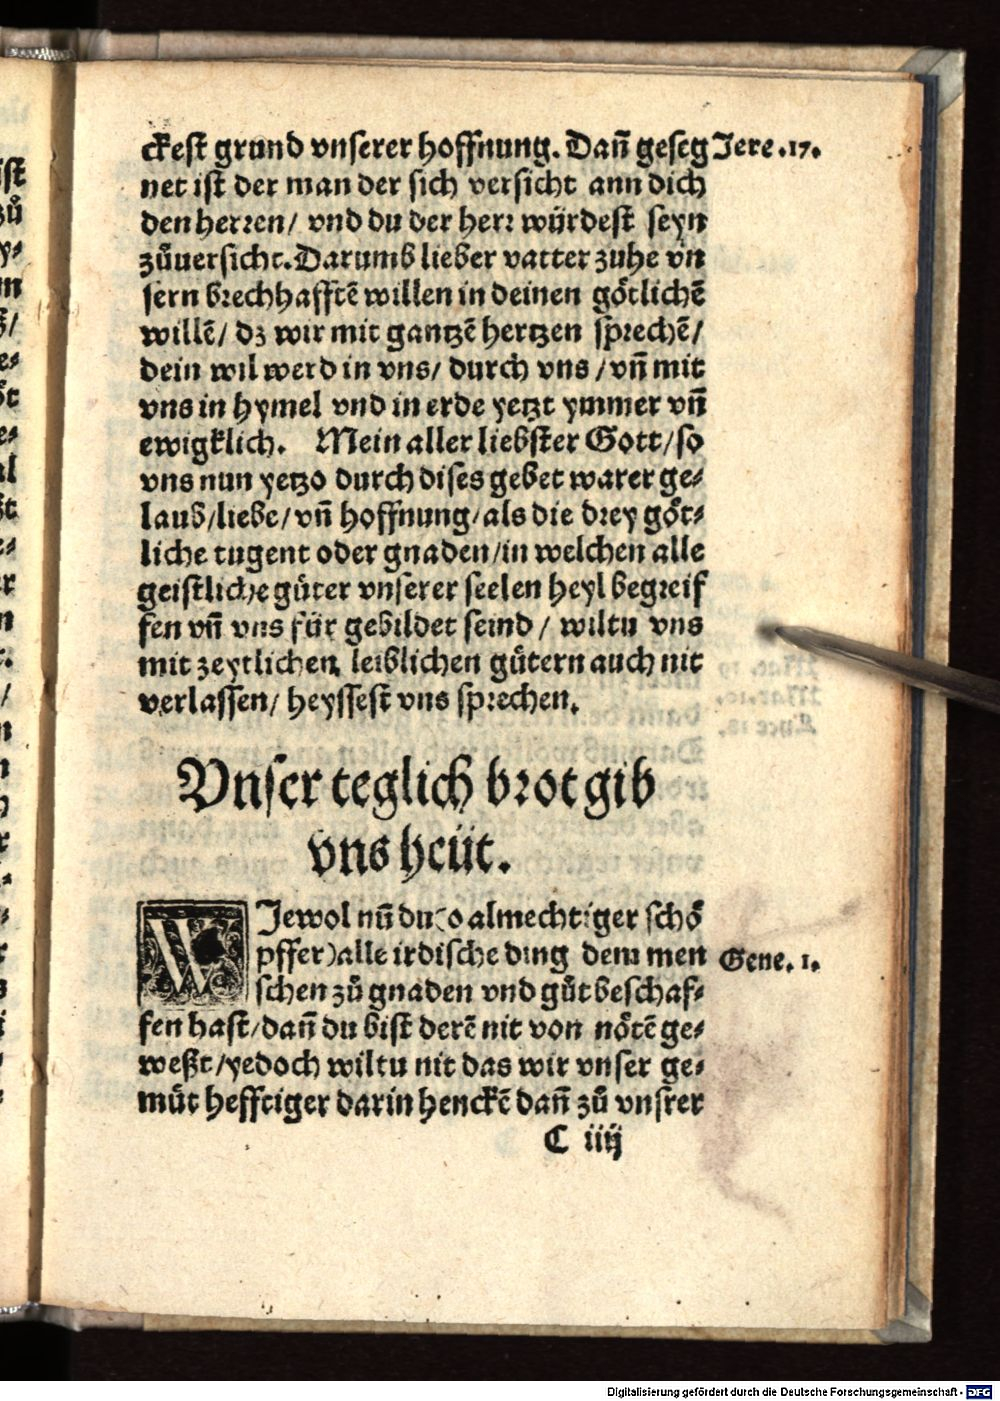 ckest grund vnserer hoffnung. Dañ geseg Jere .17.
net ist der man der sich versicht ann dich
den herren/ vnd du der herr würdest seyn
zůuersicht. Darumb lieber vatter zuhe vn
sern brechhafftē willen in deinen götlichē
willē/ dz wir mit gantzē hertzen sprechē/
dein wil werd in vns/ durch vns /vñ mit
vns in hymel vnd in erde yetzt ymmer vñ
ewigklich. Mein aller liebster Gott/so
vns nun yetzo durch dises gebet warer ge-
laub/liebe/vñ hoffnung/als die drey göt-
liche tugent oder gnaden/in welchen alle
geistliche güter vnserer seelen heyl begreif
fen vñ vns für gebildet seind/ wiltu vns
mit zeytlichen leiblichen gütern auch nit
verlassen/ heyssest vns sprechen.
Vnser teglich brot gib
vns heüt.
WJewol nů du(o almechtiger schö
pffer)alle irdische ding dem men Gene. 1.
schen zů gnaden vnd gůt beschaf-
fen hast/dañ du bist derē nit von nötē ge-
weßt/yedoch wiltu nit das wir vnser ge-
můt hefftiger darin henckē dañ zů vnsrer
C iiij
Digitalisierung gefördert durch die Deutsche Forschungsgemeinschaft - DFG